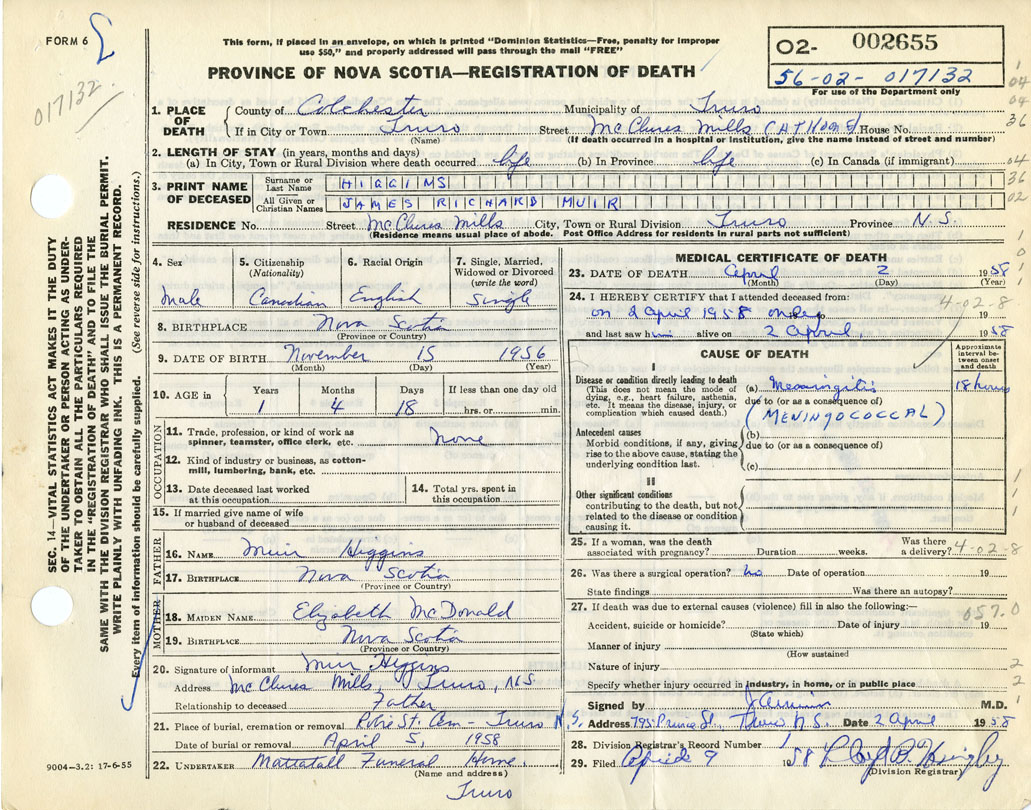 FORM 6
017132
This form, if placed in an envelope, on which is printed "Dominion Statistics—Free, penalty for improper
use $50," and properly addressed will pass through the mail "FREE"
PROVINCE OF NOVA SCOTIA—REGISTRATION OF DEATH
02- 002655
56-02- 017132
For use of the Department only
SEC. 14—VITAL STATISTICS ACT MAKES IT THE DUTY
OF THE UNDERTAKER OR PERSON ACTING AS UNDER-
TAKER TO OBTAIN ALL THE PARTICULARS REQUIRED
IN THE "REGISTRATION OF DEATH" AND TO FILE THE
SAME WITH THE DIVISION REGISTRAR WHO SHALL ISSUE THE BURIAL PERMIT.
WRITE PLAINLY WITH UNFADING INK. THIS IS A PERMANENT RECORD.
Every item of information should be carefully supplied. (See reverse side for instructions.)
1. PLACE OF DEATH County of Colchester Municipality of Truro
If in City or Town Truro Street McClures Mills (AT HOME) House No.
(Name) (If death occurred in a hospital or institution, give the name instead of street and number)
2. LENGTH OF STAY (in years, months and days)
(a) In City, Town or Rural Division where death occurred life (b) In Province life (c) In Canada (if immigrant)
3. PRINT NAME OF DECEASED Surname or Last Name HIGGINS
All Given or Christian Names JAMES RICHARD MUIR
RESIDENCE No. Street McClures Mills City, Town or Rural Division Truro Province N.S.
(Residence means usual place of abode. Post Office Address for residents in rural parts not sufficient)
4. Sex 5. Citizenship (Nationality) 6. Racial Origin 7. Single, Married, Widowed or Divorced (write the word)
Male Canadian English Single
8. BIRTHPLACE Nova Scotia
(Province or Country)
9. DATE OF BIRTH November 15 1956
(Month) (Day) (Year)
10. AGE Years Months Days If less than one day old
1 4 18 hrs. or min.
OCCUPATION
11. Trade, profession, or kind of work as
spinner, teamster, office clerk, etc. None
12. Kind of industry or business, as cotton-
mill, lumbering, bank, etc.
13. Date deceased last worked
at this occupation
14. Total yrs. spent in
this occupation
15. If married give name of wife
or husband of deceased
FATHER
16. NAME Muir Higgins
17. BIRTHPLACE Nova Scotia
(Province or Country)
MOTHER
18. MAIDEN NAME Elizabeth McDonald
19. BIRTHPLACE Nova Scotia
(Province or Country)
20. Signature of informant Muir Higgins
Address McClures Mills, Truro, N.S
Relationship to deceased Father
21. Place of burial, cremation or removal Robie St. Cem - Truro N.S.
Date of burial or removal April 5, 1958
22. UNDERTAKER Mattatall Funeral Home,
(Name and address)
Truro
9004—3.2: 17-6-55
MEDICAL CERTIFICATE OF DEATH
23. DATE OF DEATH April 2 1958
(Month) (Day) (Year)
24. I HEREBY CERTIFY that I attended deceased from:
4-02-8
on 2 April 1958 only 19
and last saw him alive on 2 April, 1958
CAUSE OF DEATH
Approximate interval between onset and death
I
Disease or condition directly leading to death
(This does not mean the mode of
dying, e.g., heart failure, asthenia,
etc. It means the disease, injury, or
complication which caused death.)
(a) Meningitis 18 hours
due to (or as a consequence of)
(MENINGOCOCCAL)
Antecedent causes
Morbid conditions, if any, giving
rise to the above cause, stating the
underlying condition last.
(b)
due to (or as a consequence of)
(c)
II
Other significant conditions
contributing to the death, but not
related to the disease or condition
causing it.
25. If a woman, was the death
associated with pregnancy? Duration weeks. Was there a delivery? 4-02-8
26. Was there a surgical operation? no Date of operation 19
State findings Was there an autopsy?
27. If death was due to external causes (violence) fill in also the following:—
057.0
Accident, suicide or homicide? Date of injury 19
(State which)
Manner of injury
(How sustained
Nature of injury
Specify whether injury occurred in industry, in home, or in public place
Signed by M.D.
Address 795 Prince St., Truro N.S. Date 2 April 1958
28. Division Registrar's Record Number 1
29. Filed April 9 1958
(Division Registrar)
1
04
04
36
04
36
02
1
1
1
1
2
2
1